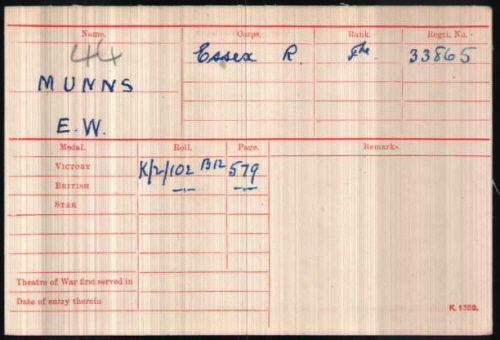 Name. Corps. Rank. Regtl. No.
44 Essex R. Pte 33865
MUNNS
E.W.
Medal. Roll. Page. Remarks.
VICTORY K/2/102 B12 579
BRITISH -.- -.-
STAR
Theatre of War first served in
Date of entry therein
K. 1380.